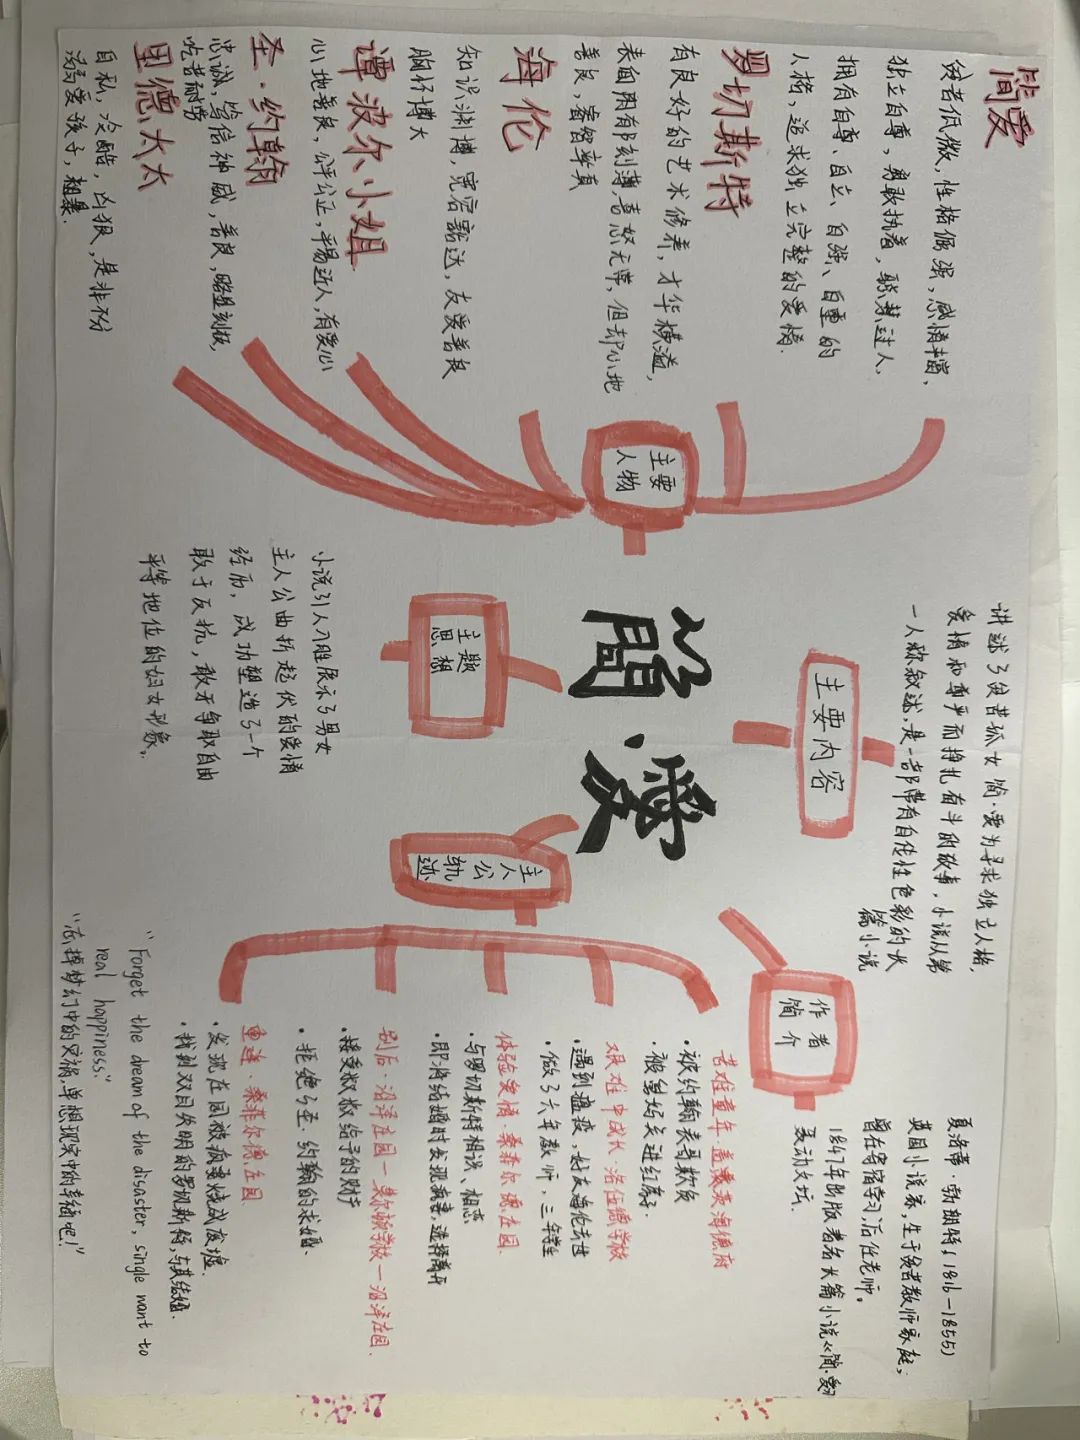 简·爱
主要人物
简爱
贫者低微，性格倔强，感情丰富，
独立自尊，勇敢执着，聪慧过人，
拥有自尊、自立、自强、自重的
人格，追求独立完整的爱情.
罗切斯特
有良好的艺术修养，才华横溢，
表面阴郁刻薄喜怒无常，但却心地
善良，睿智率真
海伦
知识渊博，宽容豁达，友爱善良
胸怀博大
谭波尔小姐
心地善良，公评公正，平易近人，有爱心
圣·约翰
忠诚，笃信神威，善良，略显刻板，
吃苦耐劳
里德太太
自私，冷酷，凶狠，是非不分
溺爱孩子，粗暴.
主要内容
讲述了贫苦孤女简·爱为寻求独立人格，
爱情和尊严而挣扎奋斗的故事，小说从第
一人称叙述，是一部带有自传性色彩的长
篇小说
主题思想
小说引人入胜展示了男女
主人公曲折起伏的爱情
经历，成功塑造了一个
敢于反抗，敢于争取自由
平等地位的妇女形象。
作者简介
夏洛蒂·勃朗特，(1816-1855)
英国小说家，生于贫者教师家庭，
曾在寄宿学习，后任老师。
1847年出版著名长篇小说《简·爱》
轰动文坛.
主人公轨迹
苦难童年·盖茨海德府
·被约翰表哥欺负
·被舅妈关进红房子.
艰难中成长·洛伍德学校
·遇到瘟疫，好友海伦去世
·做了六年教师，三年学生
体验爱情·桑菲尔德庄园.
·与罗切斯特相识、相恋
·即将结婚时发现病妻，选择离开
别后·沼泽庄园—莫尔顿学校—沼泽庄园.
·接受叔叔给予的财产
·拒绝了圣·约翰的求婚.
重逢·桑菲尔德庄园
·发现庄园被病妻烧成废墟.
·找到双目失明的罗切斯特，与其结婚.
"Forget the dream of the disaster, single want to
real happiness."
"忘掉梦幻中的灾祸，单想现实中的幸福吧！"